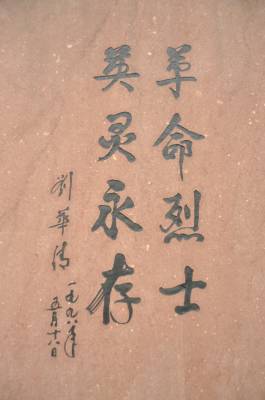 革命烈士
英灵永存
劉華清
一九九八年
五月十八日